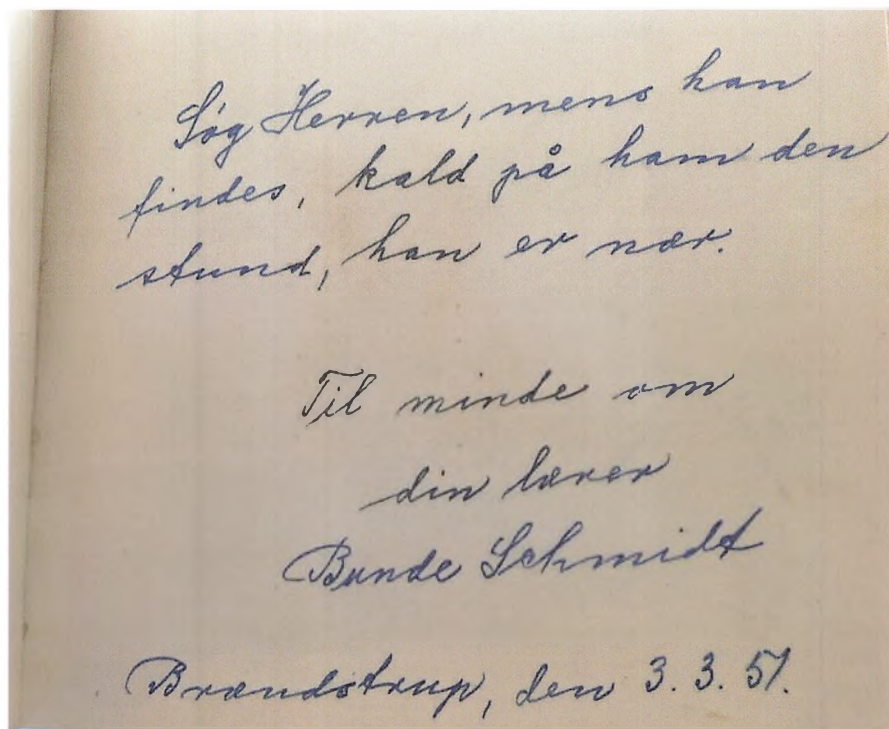 Søg Herren, mens han
findes, kald på ham den
stund, han er nær.
Til minde om
din lærer
Bunde Schmidt
Brændstrup, den 3. 3. 51.